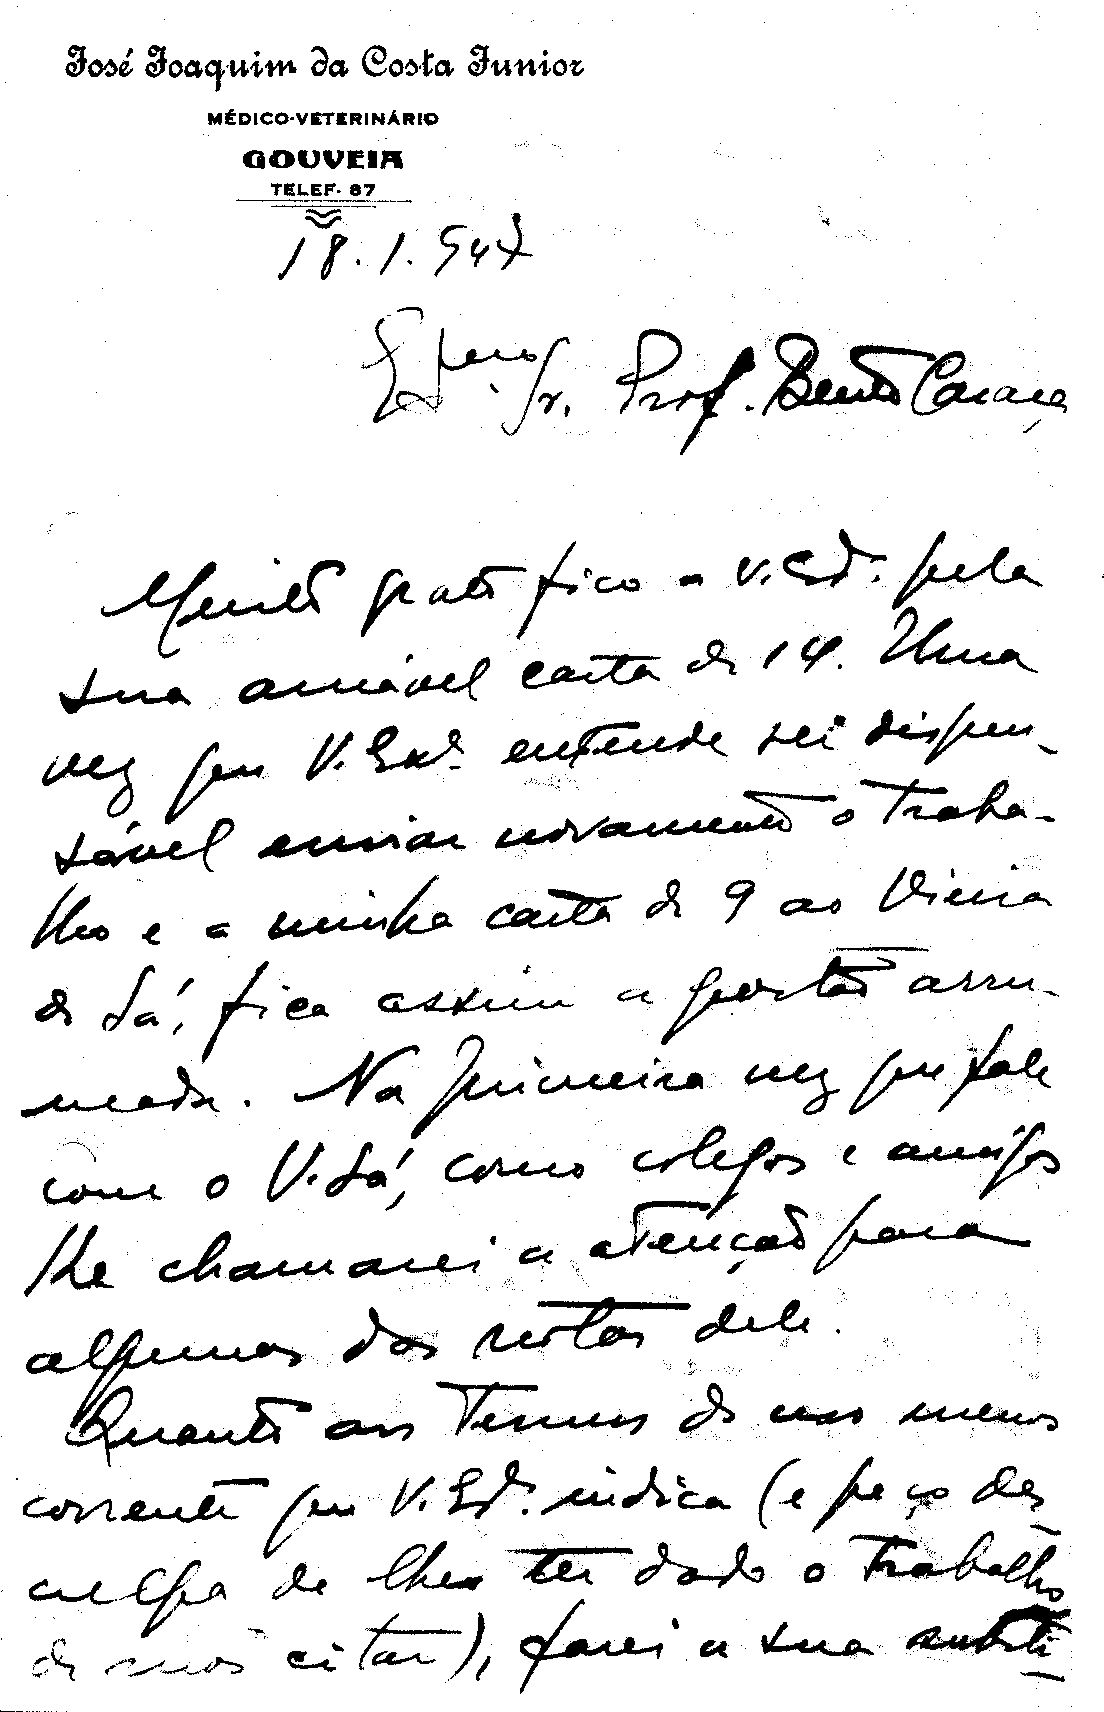 José Joaquim da Costa Junior
MÉDICO-VETERINÁRIO
GOUVEIA
TELEF. 87
18.1.947
Exmo. Sr. Prof. Bento Caraça
Muito grato fico a V. Exª. pela
sua amável carta de 14. Uma
vez que V. Exª. entende ser dispen-
sável enviar novamente o traba-
lho e a minha carta de 9 ao Vieira
de Sá, fica assim a questão arru-
mada. Na primeira vez que fale
com o V. Sá, como colegas e amigos
lhe chamarei a atenção para
algumas das notas dele.
Quanto aos termos de uso menos
corrente que V. Exª. indica (e peço des-
culpa de lhe ter dado o trabalho
de mos citar), farei a sua substi-